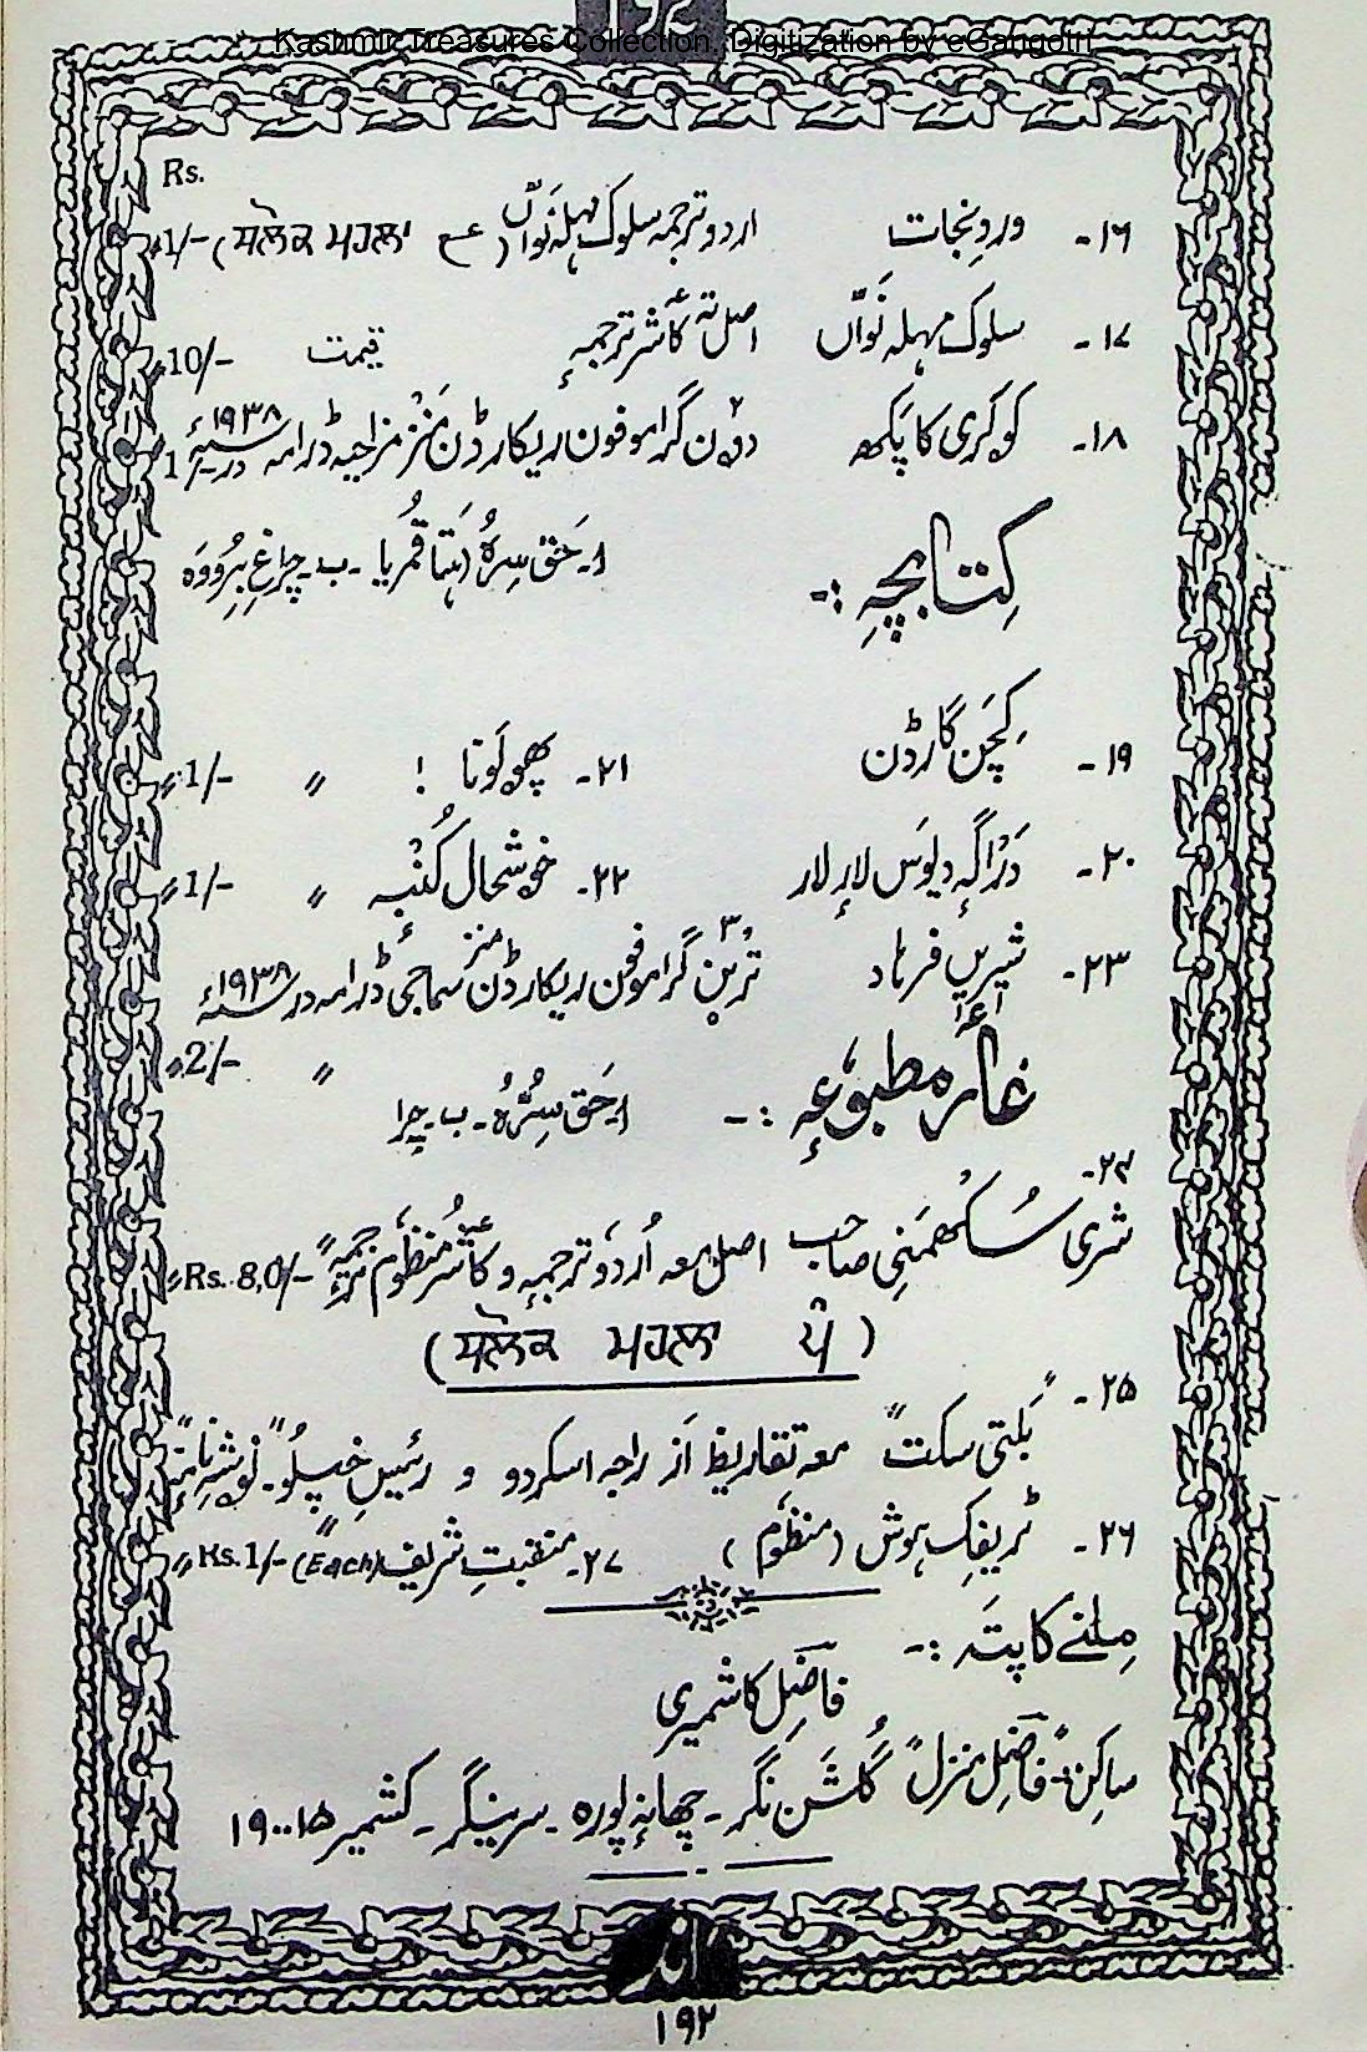 Kashmir Treasures Collection. Digitization by eGangotri
Rs.
۱۶- وردِ نجات اردو ترجمہ سلوک مہلہ نواں ( ਸਲੋਕ ਮਹਲਾ ) 1/-
۱۷- سلوک مہلہ نواں اصل تہٕ کأشر ترجمہٕ قیمت 10/-
۱۸- کوکری کا پَکھ دۄن گراموفون ریکارڈن منز مزاحیہ ڈرامہ در ۱۹۳۸ء 1/-
کِتابچہِ :-
۱۹- کِچَن گارڈن ۲۱- پھولَونا ! 〃 1/-
۲۰- دَراگہٕ دیوَس لارِ لار ۲۲- خوشحال کُنبہٕ 〃 1/-
۲۳- شیریں فرہاد ترٛین ۳ گراموفون ریکارڈن منز سماجی ڈرامہ در ۱۹۳۸ء
〃 2/-
غأر مطبوٗعہٕ :-
۲۴-
شری سُکھمَنی صاحب اصل معہ اُردوٗ ترجمہٕ و کأشُر منظوٗم ترجمہٕ Rs. 8,0/-
( ਸਲੋਕ ਮਹਲਾ ੫ )
۲۵- "بَلتی سکت" معہ تقاریظ اَز راجہ اسکردو و رئیسِ خپلُو۔
۲۶- ٹریفِک ہوش (منظوٗم) ۲۷- منقبتِ شریف (Each) Rs. 1/-
مِلنے کا پتَہ :-
فاضِل کاشمیری
ساکِن: "فاضِل منزل" گُلشَن نگر - چھانہٕ پورہ - سرینگر - کشمیر ۱۹۰۰۱۵
۱۹۲